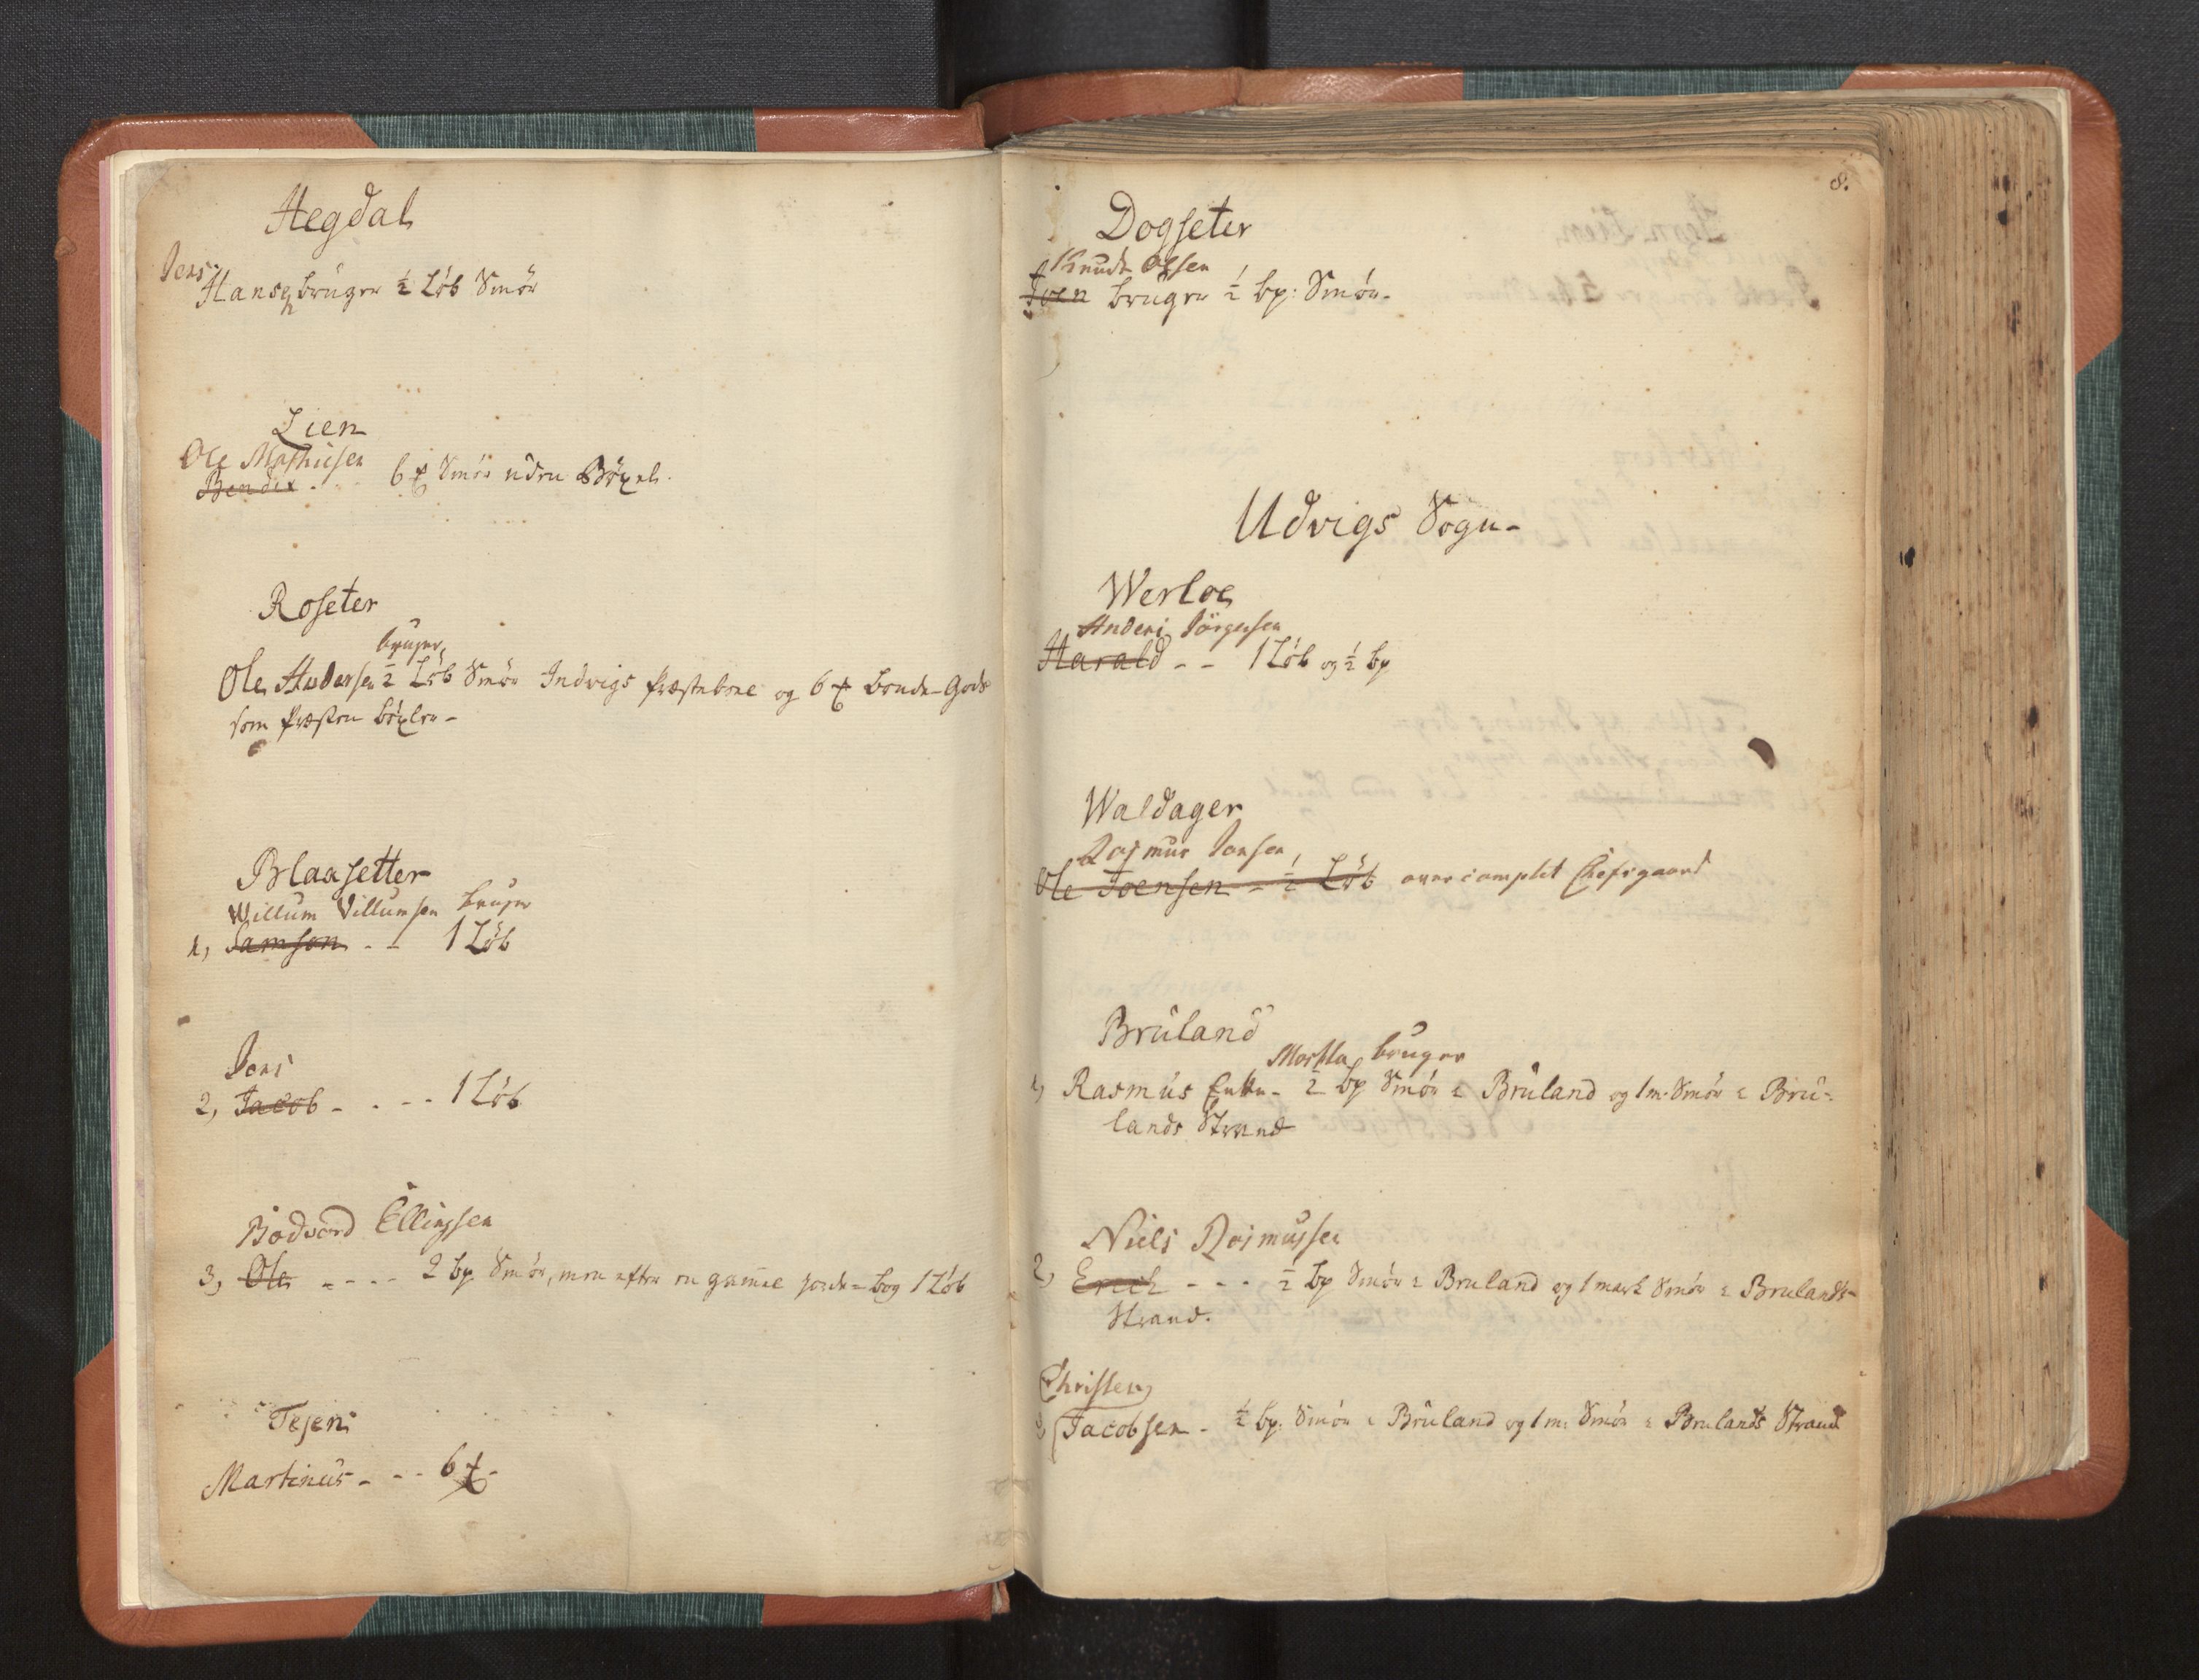 Hegdal
Jens
Hans brüger ½ Løb Smør
Lien
Ole Mathiesen
Bendix - 6 ℔ Smør uden Böxel.
Roseter
bruger
Ole Andersen ½ Løb Smør Indvigs Præstebole og 6 ℔ bonde-Gods
som Præsten böxler -
Blaasetter
Willum Villumsen bruger
1, Samson - - 1 Løb
Jens
2, Jacob - - - - 1 Løb
Bodvard Ellingsen
3, Ole - - - - 2 bp Smør, men efter en gammel Jorde-bog 1 Løb
Tejen
Martinus - - - 6 ℔ -
8.
Dogseter
Knud Olsen
Joen brüger ½ bp: Smør.
Udvigs Sogn -
Werloe
Anders Jörgensen
Harald - - 1 Løb og ½ bp
Waldager
Rasmus Jonsen
Ole Joensen - ½ Løb overcomplet Chefsgaard
Brüland
bruger
1, Rasmüs Enke - ½ bp Smør i Brüland og 1 m: Smør i Brü-
lands Strand
Niels Rasmussen
2, Erich - - - ½ bp Smør i Bruland og 1 mark Smør i Brulands-
Strand.
Christen
3, Jacobsen - ½ bp: Smør i Brüland og 1 m: Smør i Brulands Strand